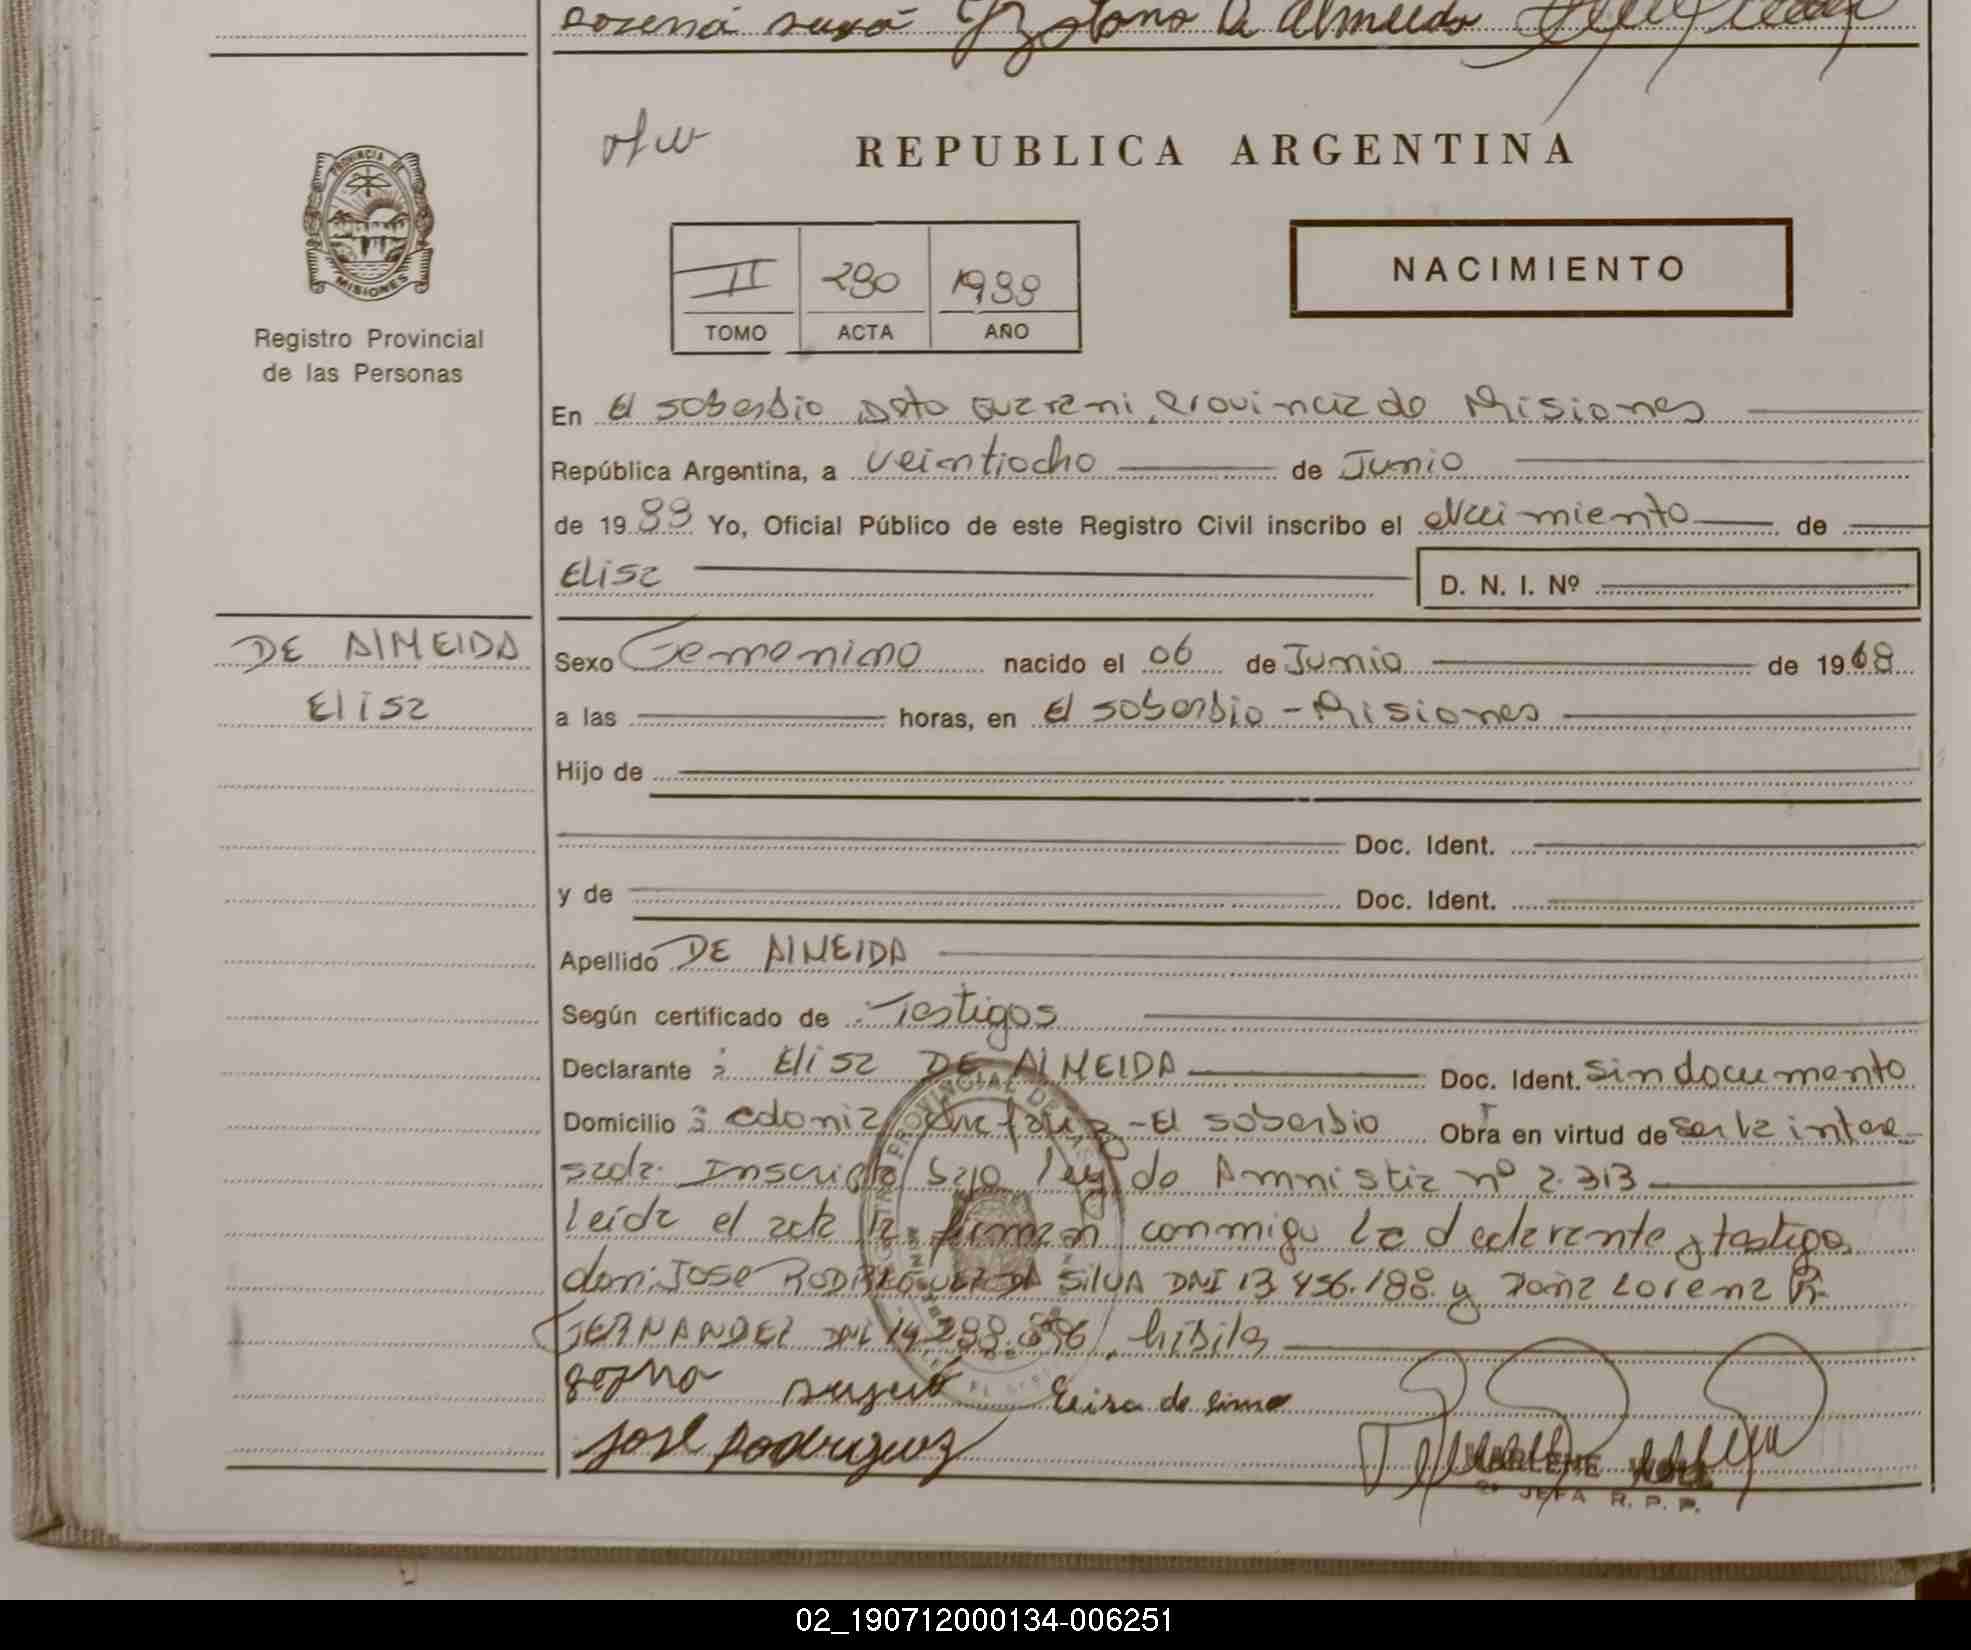 rosena Br Stano D Almeida
REPUBLICA ARGENTINA
PROVINCIA DE MISIONES
Registro Provincial
de las Personas
NACIMIENTO
II 290 1988
TOMO ACTA AÑO
En El soberbio Dpto Guarani, Provincia de Misiones
República Argentina, a veintiocho de Junio
de 1988 Yo, Oficial Público de este Registro Civil inscribo el Nacimiento de
Elisa D. N. I. Nº
DE ALMEIDA
Elisa
Sexo Femenino nacido el 06 de Junio de 1968
a las horas, en El soberbio - Misiones
Hijo de
Doc. Ident.
y de Doc. Ident.
Apellido DE ALMEIDA
Según certificado de Testigos
Declarante : Elisa DE ALMEIDA Doc. Ident. sin documento
Domicilio : colonia - El soberbio Obra en virtud de ser la intere-
sada. Inscripta bajo ley de Amnistia nº 2.313
leida el acta la firman conmigo la declarante y testigos
don: Jose RODRIGUEZ DA SILVA DNI 13.456.188. y doña Lorena R.
FERNANDEZ DNI 14.288.696, habiles
Elisa de
jose Rodriguez
MARLENE
JEFA R. P. P.
02_190712000134-006251